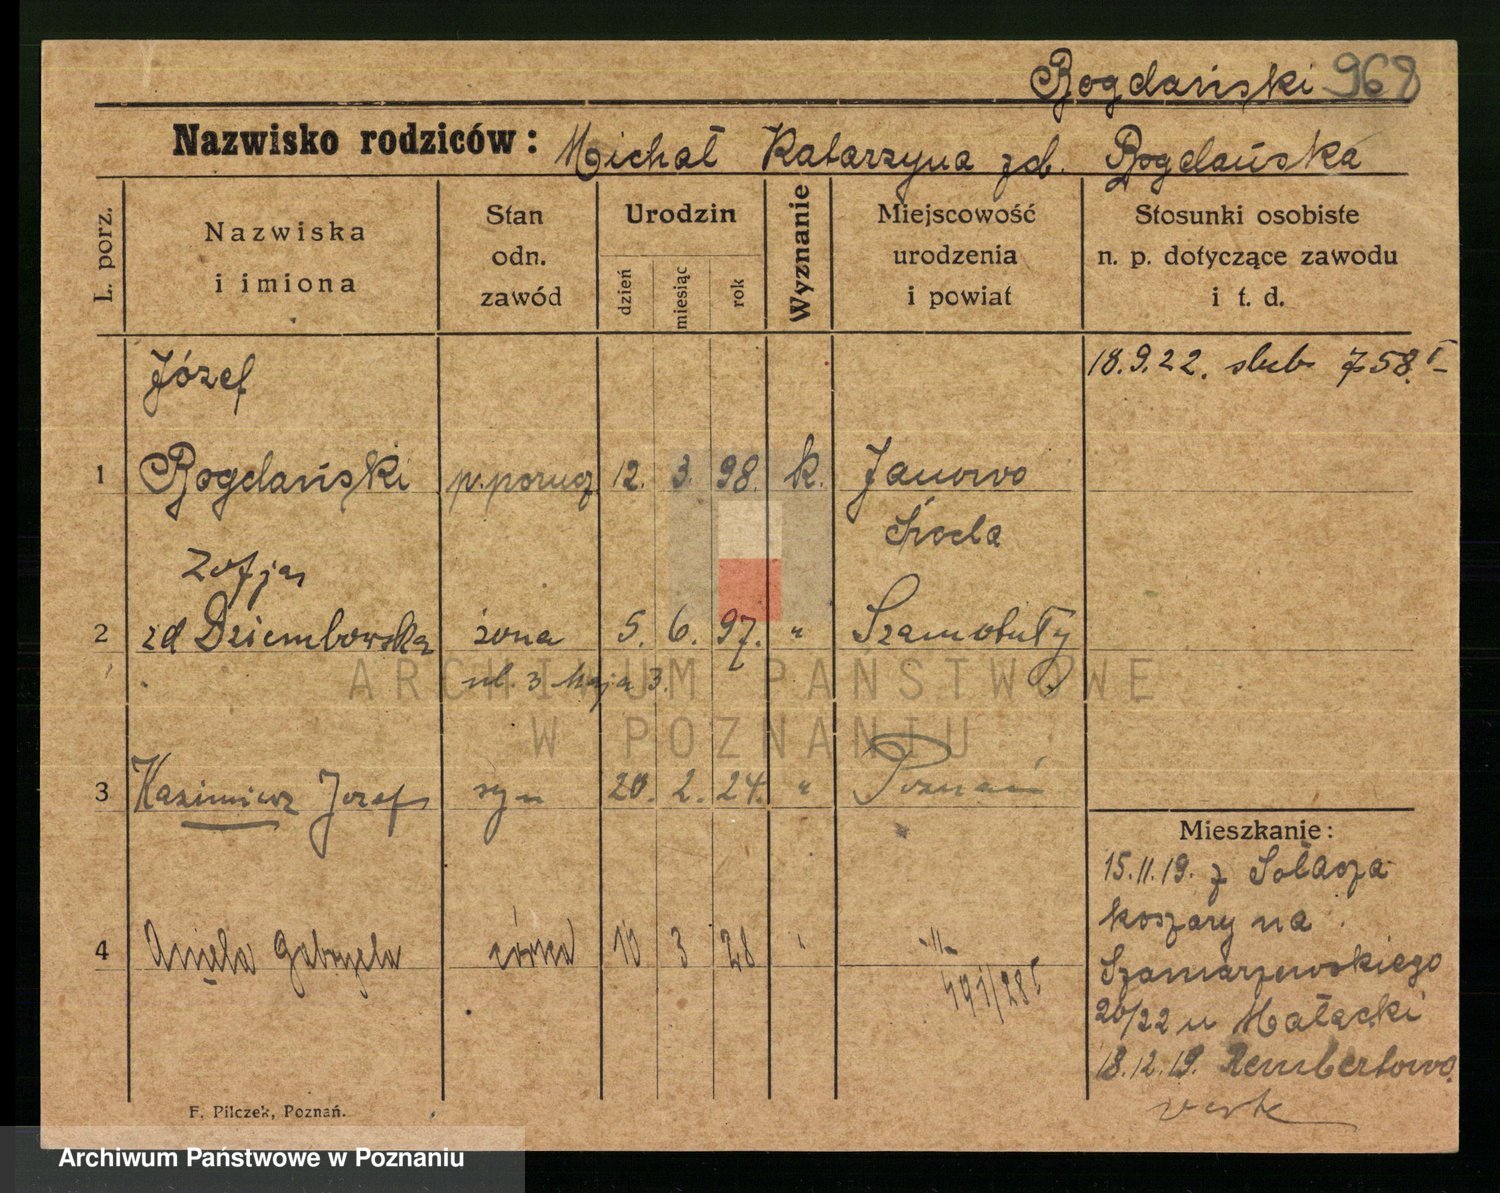 Bogdański 968
Nazwisko rodziców: Michał Katarzyna zd. Bogdańska
L. porz.
Nazwiska
i imiona
Stan
odn.
zawód
Urodzin
dzień
miesiąc
rok
Wyznanie
Miejscowość
urodzenia
i powiat
Stosunki osobiste
n. p. dotyczące zawodu
i t. d.
Józef
18.9.22. slub 758.I
1 Bogdański p. porucz 12. 3. 98. k. Janowo
Środa
Zofja
2 zd Dziembowska żona 5. 6. 97. " Szamotuły
ul. 3 Maja 3.
3 Kazimierz Jozef syn 20. 2. 24. " Poznań
Mieszkanie:
15.11.19. z Sołacza
koszary na
Szamarzewskiego
20/22 u Małacki
18.12.19. Rembertowo
4 Aniela Gabryela córka 10 3 28 " -"-
491/28 I
F. Pilczek, Poznań.
ARCHIWUM PAŃSTWOWE
W POZNANIU
Archiwum Państwowe w Poznaniu